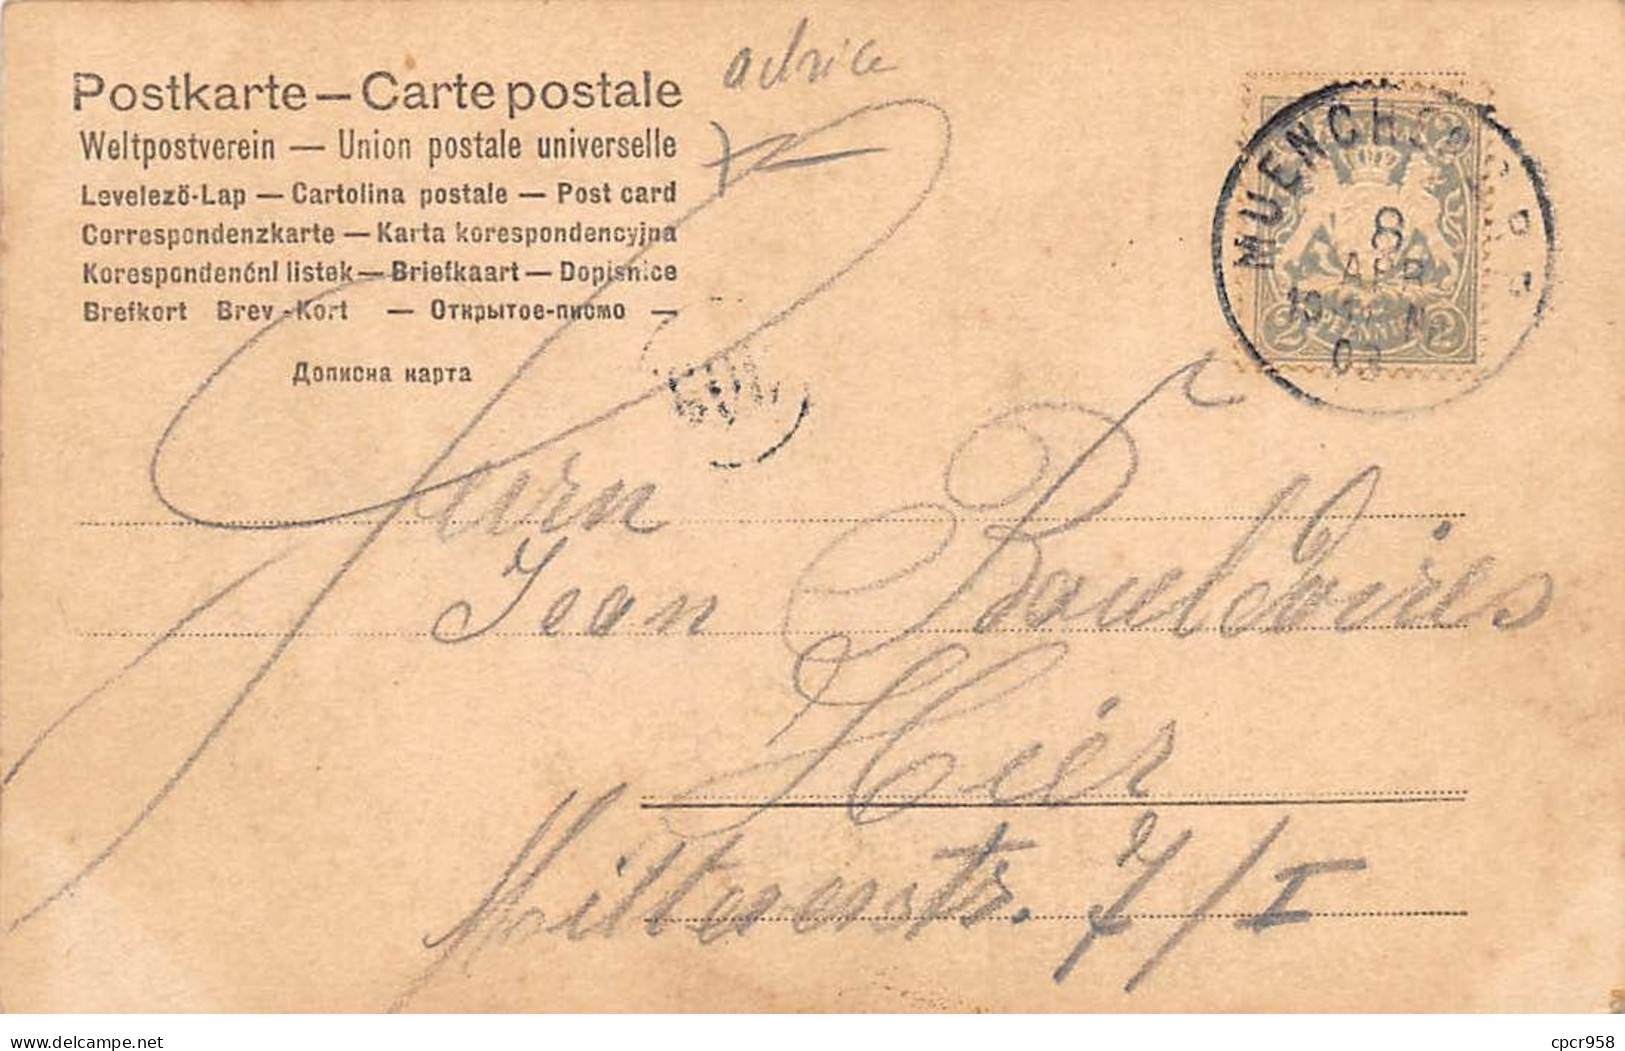 actrice
Postkarte — Carte postale
Weltpostverein — Union postale universelle
Levelező-Lap — Cartolina postale — Post card
Correspondenzkarte — Karta korespondencyjna
Korespondenční listek — Briefkaart — Dopisnice
Brefkort Brev-Kort — Открытое-писмо —
Дописна карта
MUENCHEN
8
APR
03
2 PFENNIG 2
Herrn
Jean
Hier
7/I
www.delcampe.net
cpcr958